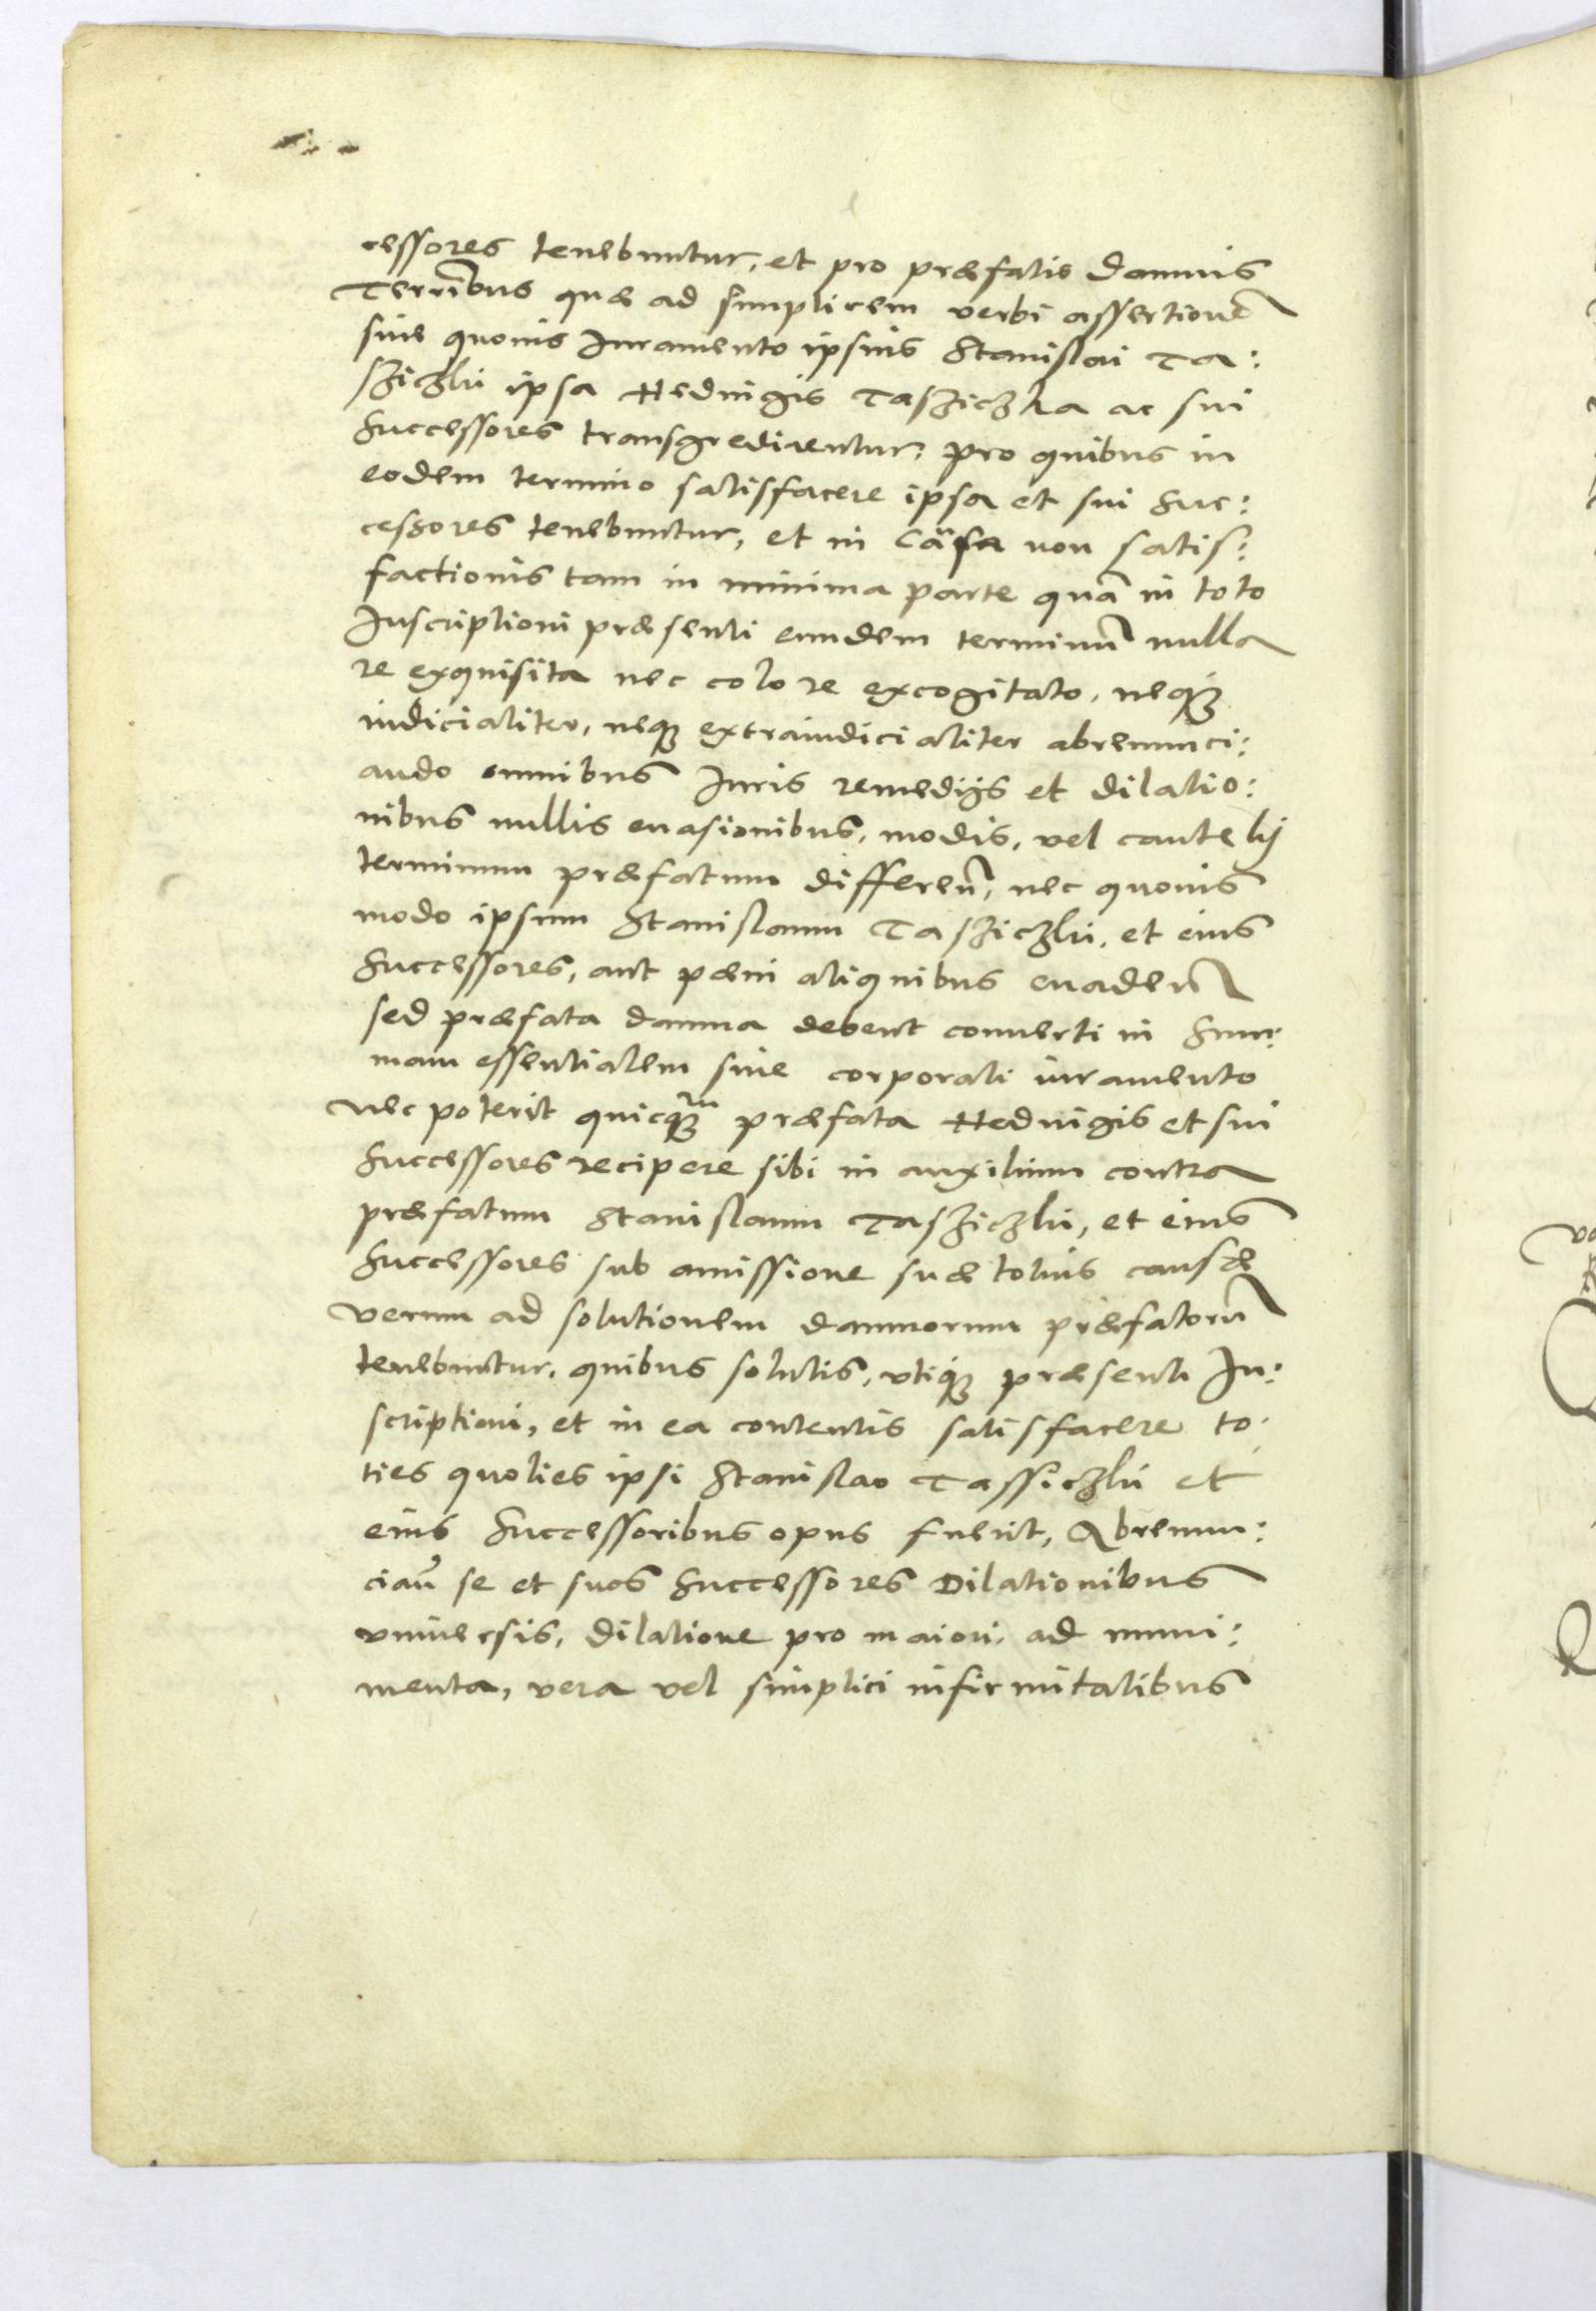 cessores tenebuntur, et pro præfatis damnis
Terrībus quæ ad simplicem verbi assertionē
sine quouis Iuramento ipsius Stanislai Ta:
sziczkii ipsa Heduigis Tasziczka ac sui
Successores transgredirentur, pro quibus in
eodem termino satisfacere ipsa et sui Suc:
cessores tenebuntur, et in Cāsa non satis:
factionis tam in minima parte quā in toto
Inscriptioni præsenti eundem terminū nulla
re exquisita nec colore excogitato, neqꝫ
iudicialiter, neqꝫ extraiudicialiter abrenunci:
ando omnibus Iuris remedijs et dilatio:
nibus nullis euasionibus, modis, vel cautelis
terminum præfatum differeñ, nec quouis
modo ipsum Stanislaum Tasziczkii, et eius
Successores, aut pæni aliquibus euadeñ
sed præfata damna debent conuerti in Sum:
mam essentialem sine corporali iuramento
nec poterit quicqꝫm præfata Heduigis et sui
Successores recipere sibi in auxilium contra
præfatum Stanislaum Tasziczkii, et eius
Successores sub amissione suæ totius causæ
verum ad solutionem damnorum præfatorū
tenebuntur, quibus solutis, vtiqꝫ præsenti In:
scriptioni, et in ea contentis satisfacere to:
ties quoties ipsi Stanislao Tassiczkii et
eius Successoribus opus fuerit, Abrenun:
ciañ se et suos Successores Dilationibus
vniuersis, dilatione pro maiori, ad muni:
menta, vera vel simplici infirmitatibus